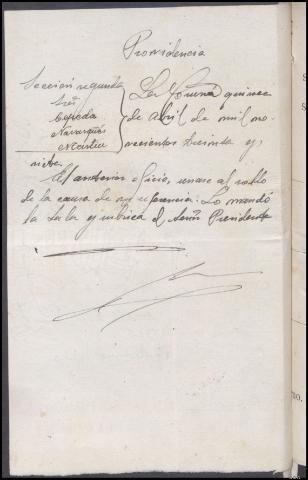 Providencia
Sección segunda
Sres
Cepeda
Navarques
La Coruña quince
de Abril de mil no-
vecientos treinta y
siete.
El anterior oficio, unase al rollo
de la causa de su referencia: Lo mandó
la Sala y rubrica el Señor Presidente